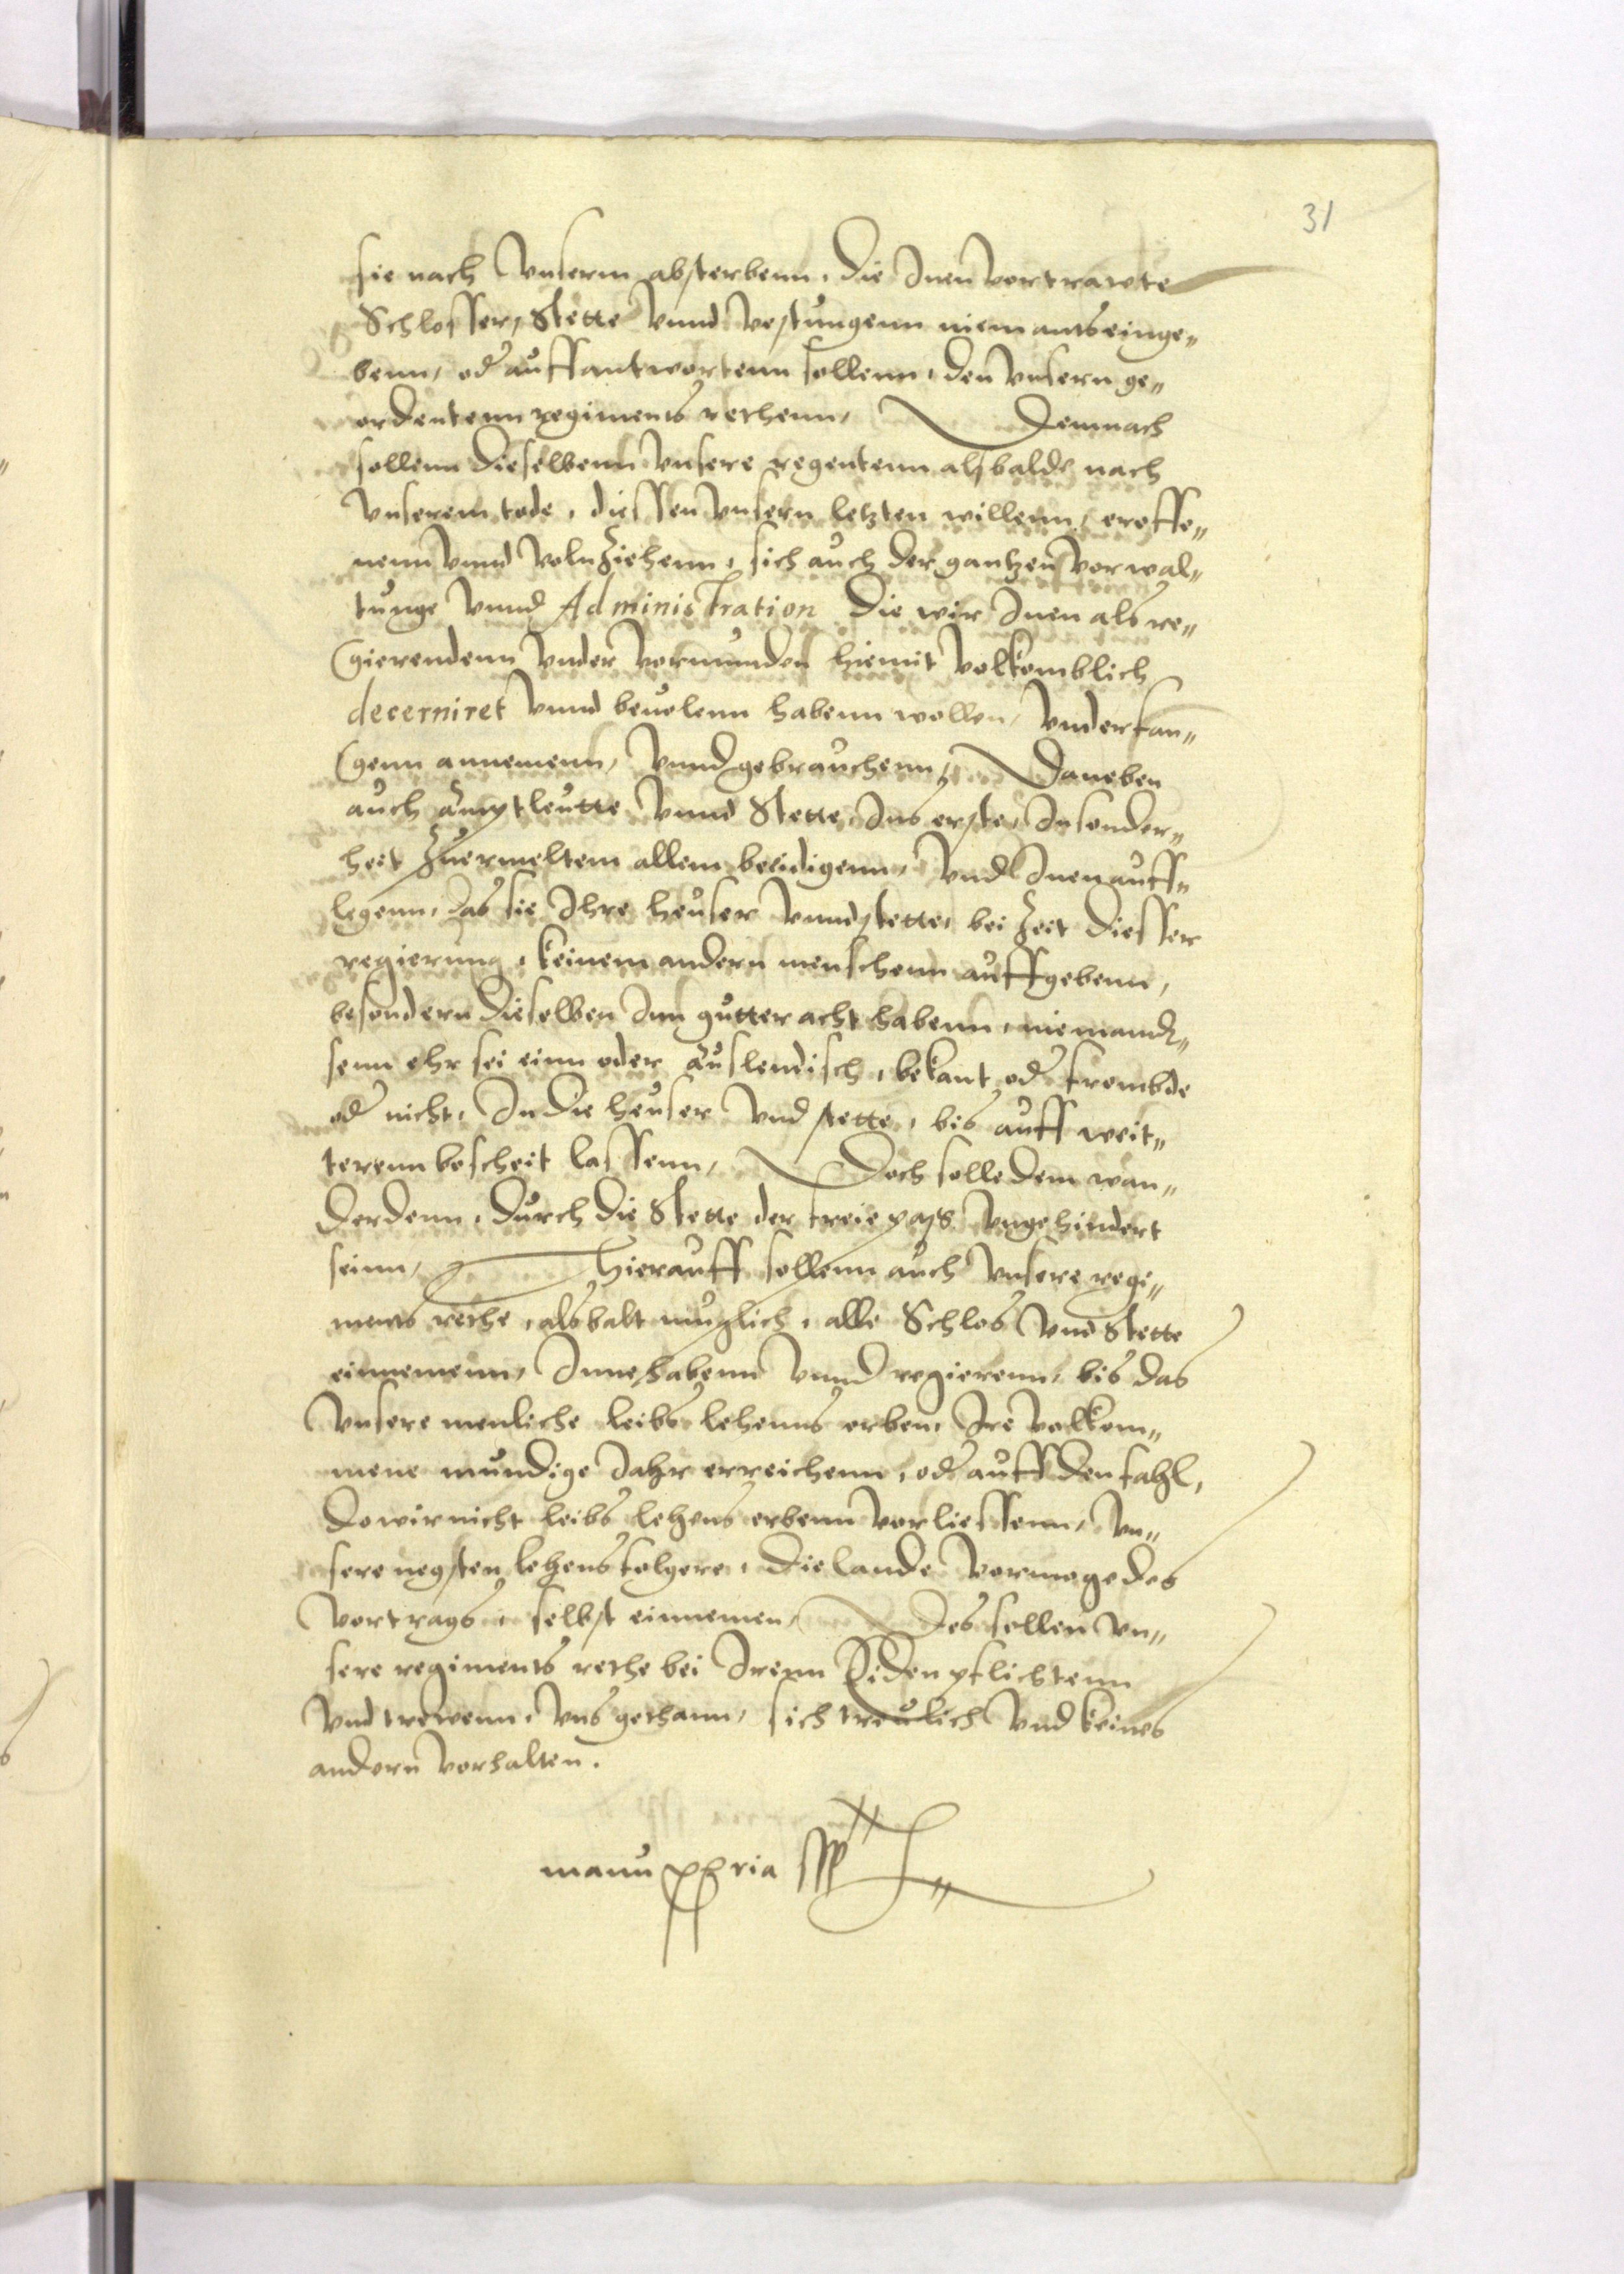 31
sie nach Vnserm absterbenn, die Inen vortrawte
Schlosser, Stette vnnd vestungenn niemants einge„
benn, od auffantwortenn sollenn, den vnsern ge„
ordentenn regiments rethenn, Demnach
sollenn dieselbenn vnsere regentenn alsbalde nach
vnserem tode, diessen vnsern letzten willenn, eroffe„
nenn vnnd volnziehenn, sich auch der gantzen vorwal„
tunge vnnd Administration die wir Inen als re„
gierendenn vnder vormunden hiemit volkomblich
decerniret vnnd beuolenn habenn wollen, vnderfan„
genn annemenn, vnnd gebrauchenn, Daneben
auch Amptleutte vnnd Stette, Ins erste, Insonder„
heit zuermeltem allem beeidigenn, vnd Inen auff„
legenn, das sie Ihre heuser vnnd stette, bei Zeit diesser
regierung, keinem andern menschenn auffgebenn,
besondern dieselben Inn gutter acht habenn, niemand„
senn ehr sei einn oder auslendisch, bekant od frembde
od nicht, In die heuser vnd stette, bis auff weit„
terenn bescheit lassenn, Doch solle dem wan„
derdenn, durch die Stette der freie pass vngehindert
seinn, Hierauff sollenn auch vnsere regi„
ments rethe, alsbalt muglich, alle Schlos vnd Stette
einnemenn, Innehabenn vnnd regierenn, bis das
vnsere menliche leibs lehenns erben, Ire volkom„
mene mundige Jahr erreichenn, od auff den fahl,
do wir nicht leibs lehens erbenn vorliessenn, vn„
sere negsten lehens folgere, die lande vormoge des
vortrags, selbst einnemen, Des sollen vn„
sere regiments rethe bei Irenn Eiden pflichtenn
vnd trewenn, vns gethann, sich treulich vnd keines
andern vorhalten.
manu ppria